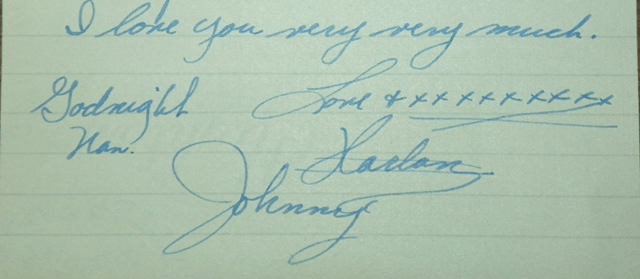 I love you very very much.
Godnight Love & xxxxxxxxx
Nan. Harlan
Johnny